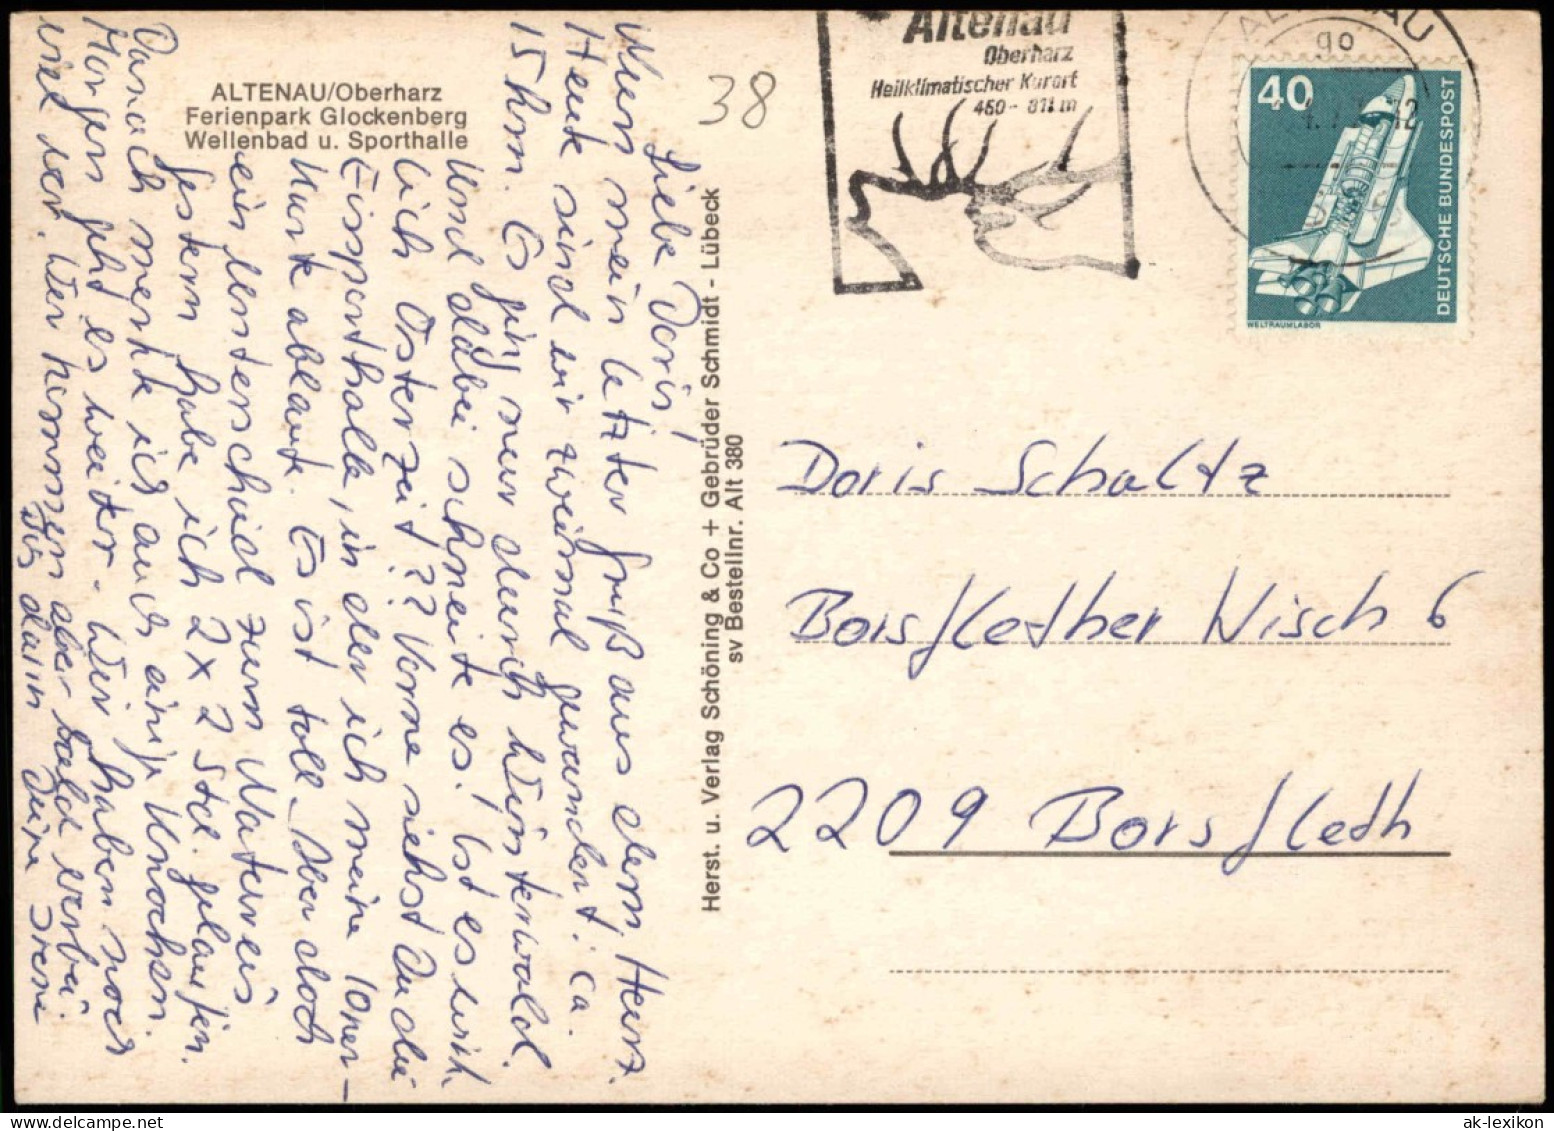 ALTENAU/Oberharz
Ferienpark Glockenberg
Wellenbad u. Sporthalle
38
Liebe Doris!
Nun mein letzter Gruß aus dem Harz.
Heute sind wir zweimal gewandert: ca.
15 km. Es ging nur durch Winterwald.
Und dabei schneite es! Ist es wirk-
lich Osterzeit?? Vorne siehst Du die
Eissporthalle, in der ich meine 10ner-
Karte ablaufe. Es ist toll. Aber doch
ein Unterschied zum Natureis
gestern habe ich 2x2 Std. gelaufen.
Danach merkte ich auch einige Knochen.
Morgen geht es weiter. Wir haben noch
viel vor. Wir kommen aber bald vorbei.
Bis dann Deine Irene
Herst. u. Verlag Schöning & Co + Gebrüder Schmidt - Lübeck
sv Bestellnr. Alt 380
Altenau
Oberharz
Heilklimatischer Kurort
450 - 811 m
ALTENAU
go
12
40
DEUTSCHE BUNDESPOST
WELTRAUMLABOR
Doris Schaltz
Borsflether Wisch 6
2209 Borsfleth
ak-lexikon